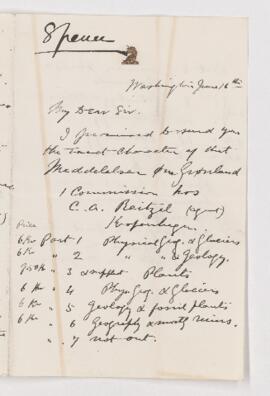 Spencer
Washington June 16th
My Dear Sir.
I promised to send you
the exact character of that
Meddelelser om Grønland
1 Commission hos
C. A. Reitzel (agent)
Kopenhagen.
Price
6 Kr Part 1 Physical Geog. & Glaciers
6 Kr " 2 " " & Geology.
7.50 Kr " 3 & supplt Plants
6 Kr " 4 Phys Geog. & Glaciers
6 Kr " 5 Geology & fossil plants
6 Kr " 6 Geography & north ruins.
" 7 not out.